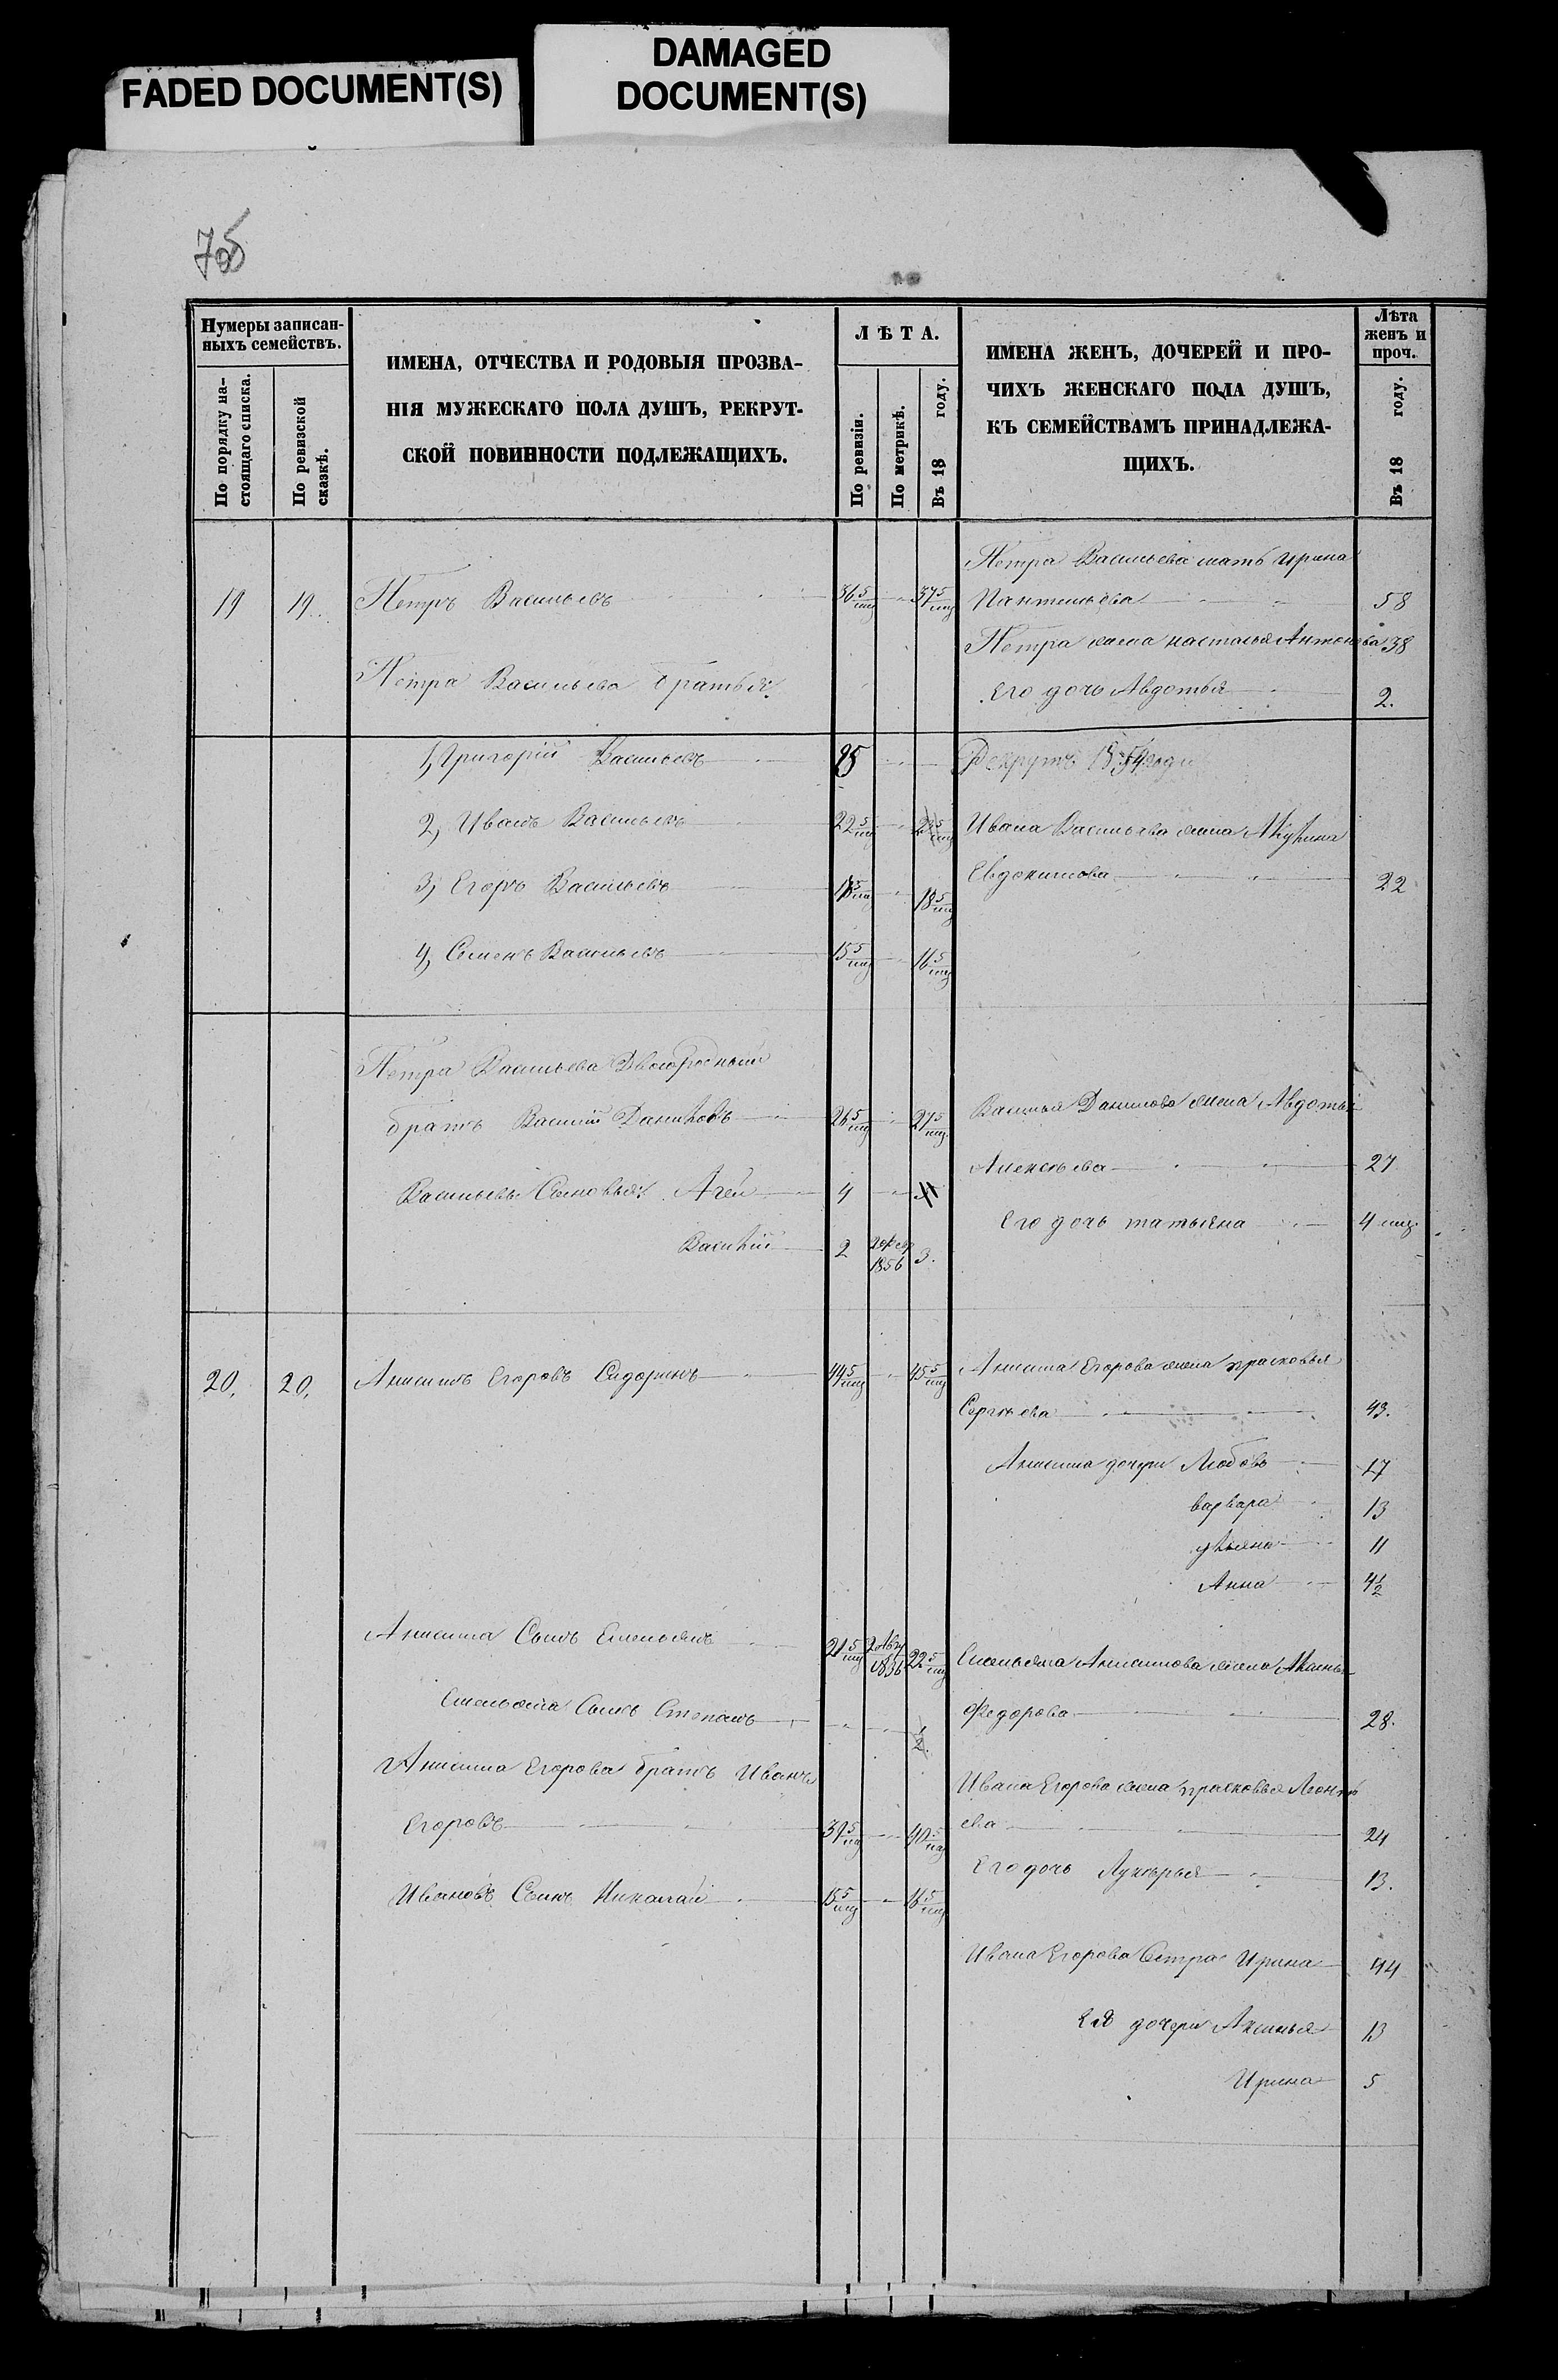 FADED DOCUMENT(S)
DAMAGED
DOCUMENT(S)
Нумеры записан-
ныхъ семействъ.
По порядку на-
стоящаго списка.
По ревизской
сказкѣ.
ИМЕНА, ОТЧЕСТВА И РОДОВЫЯ ПРОЗВА-
НІЯ МУЖЕСКАГО ПОЛА ДУШЪ, РЕКРУТ-
СКОЙ ПОВИННОСТИ ПОДЛЕЖАЩИХЪ.
ЛѢТА.
По ревизіи.
По метрикѣ.
Въ 18 году.
ИМЕНА ЖЕНЪ, ДОЧЕРЕЙ И ПРО-
ЧИХЪ ЖЕНСКАГО ПОЛА ДУШЪ,
КЪ СЕМЕЙСТВАМЪ ПРИНАДЛЕЖА-
ЩИХЪ.
Лѣта
женъ и
проч.
Въ 18 году.
Петра Васильева мать Ирина
19 19 Петръ Васильевъ 36 5/мц 37 5/мц Пантелѣева 58
Петра жена Настасья Антонова 38
Петра Васильева братья:
Его дочь Авдотья 2.
1, Григорій Васильевъ 25 Рекрутъ 1854 года
2, Иванъ Васильевъ 22 5/мц 23 5/мц Ивана Васильева жена Акулина
Евдокимова 22
3, Егоръ Васильевъ 18 5/мц
4, Семенъ Васильевъ 15 5/мц 16 5/мц
Петра Васильева Двоюродный
братъ Василій Даниловъ 26 5/мц 27 5/мц Василья Данилова жена Авдотья
Алексѣева 27
Васильевы Сыновья: Агей 4
Его дочь Татьяна 4 мц
Василій 2 1856 3.
20. 20. Анисимъ Егоровъ Сидоринъ 44 5/мц 45 5/мц Анисима Егорова жена Прасковья
Сергѣева 43.
Анисима дочери Любовь 17
Варвара 13
Ульяна 11
Анна 4 1/2
Анисима Сынъ Емельянъ 21 5/мц 1836 22 5/мц Емельяна Анисимова жена Аксинья
Федорова 28.
Емельяна Сынъ Степанъ 1/2
Анисима Егорова братъ Иванъ
Егоровъ 39 5/мц 40 5/мц
Ивана Егорова жена Прасковья Леонтѣ
ева 24
Его дочь Лукерья 13.
Ивановъ Сынъ Николай 15 5/мц 16 5/мц
Ивана Егорова Сестра Ирина 44
Ея дочери Аксинья 13
Ирина 5